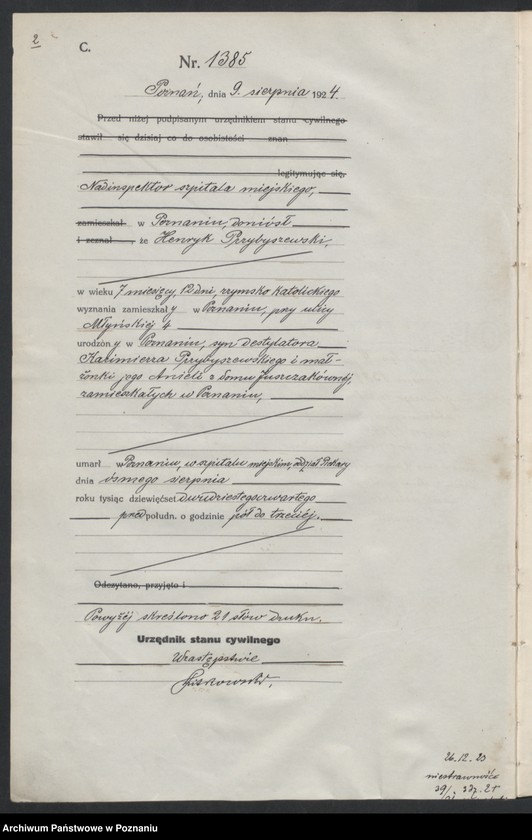 2
C.
Nr. 1385
Poznań, dnia 9. sierpnia 1924.
Przed niżej podpisanym urzędnikiem stanu cywilnego
stawił się dzisiaj co do osobistości znan
legitymując się,
Nadinspektor szpitala miejskiego,
zamieszkał w Poznaniu, doniósł
i zeznał, że Henryk Przybyszewski,
w wieku 7 miesięcy, 12 dni, rzymsko katolickiego
wyznania zamieszkały w Poznaniu, przy ulicy
Młyńskiej 4
urodzony w Poznaniu, syn Destylatora
Kazimierza Przybyszewskiego i mał-
żonki jego Anieli z domu Juszczakównej,
zamieszkałych w Poznaniu,
umarł w Poznaniu, w szpitalu miejskim,
dnia ósmego sierpnia
roku tysiąc dziewięćset dwudziestegoczwartego
przedpołudn. o godzinie pół do trzeciej.
Odczytano, przyjęto i
Powyżej skreślono 21 słów druku.
Urzędnik stanu cywilnego
W zastępstwie
26.12.23
niestrawność
Archiwum Państwowe w Poznaniu